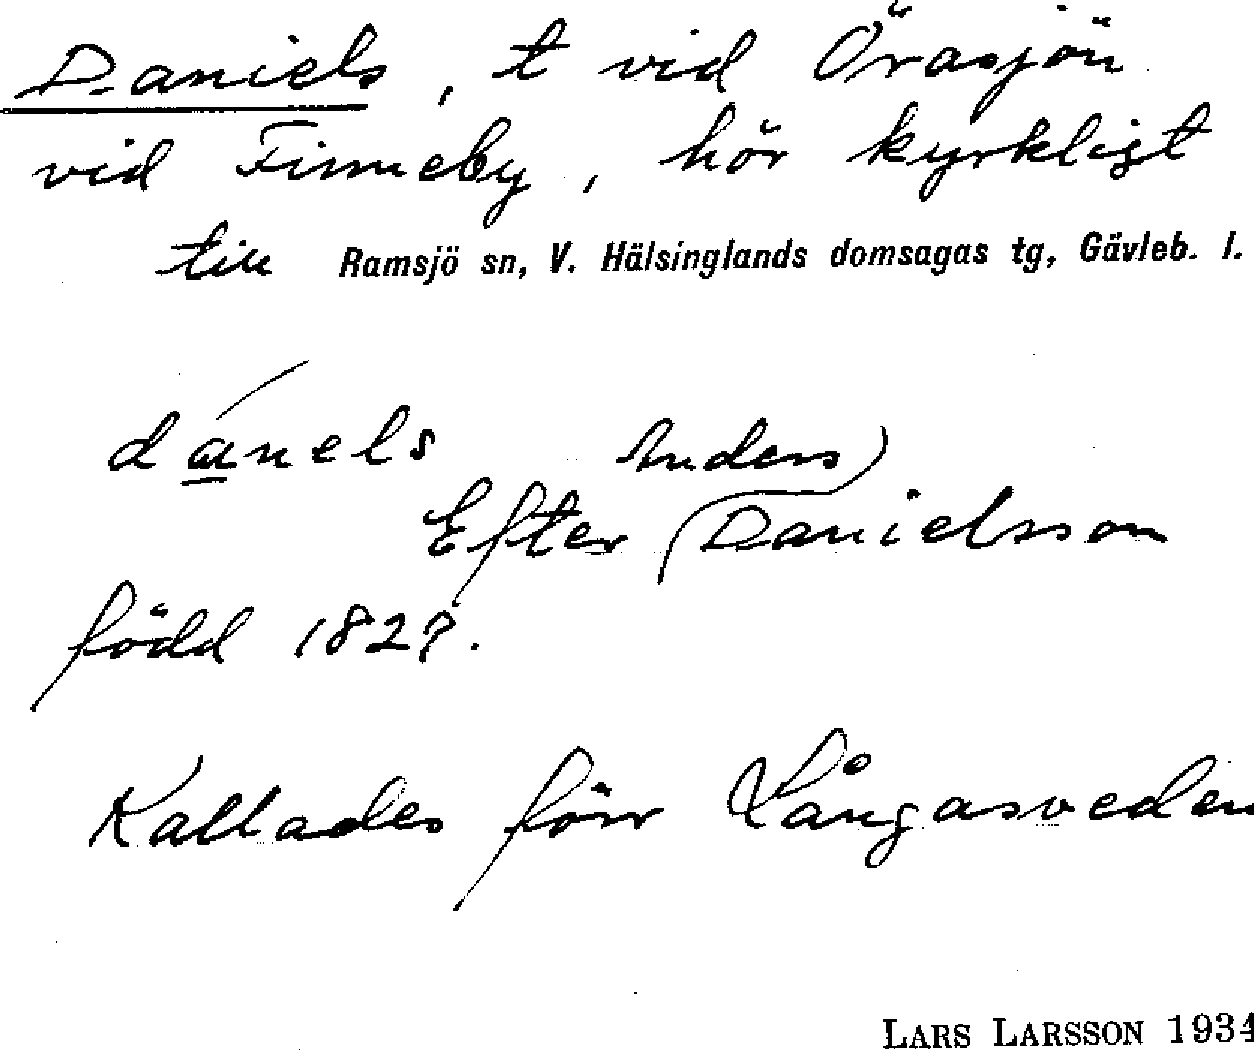 Daniels, t vid Örasjön
vid Finneby, hör kyrkligt
till Ramsjö sn, V. Hälsinglands domsagas tg, Gävleb. l.
dánels Anders
Efter Danielsson
född 1827.
Kallades förr Långasveden
LARS LARSSON 1934